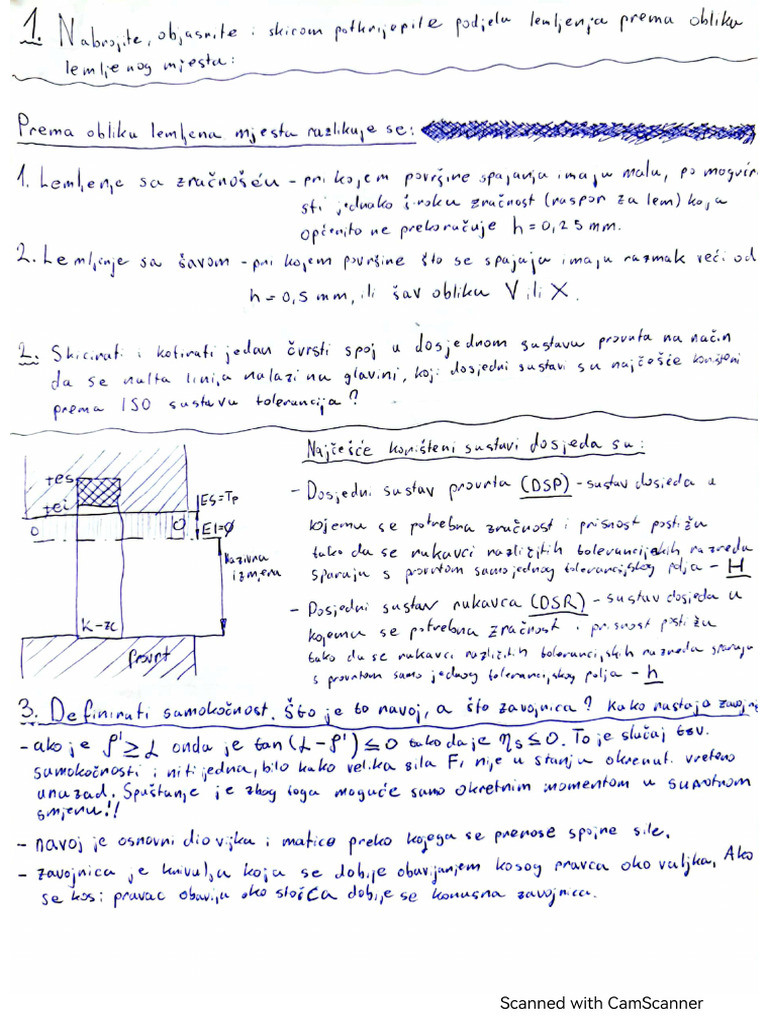 1. Nabrojite, objasnite i skicom potkrijepite podjelu lemljenja prema obliku
lemljenog mjesta:
Prema obliku lemljena mjesta razlikuje se:
1. Lemljenje sa zračnošću - pri kojem površine spajanja imaju malu, po mogućno
sti jednako široku zračnost (raspor za lem) koja
općenito ne prekoračuje h=0,25mm.
2. Lemljenje sa šavom - pri kojem površine što se spajaju imaju razmak veći od
h=0,5mm, ili šav obliku V ili X.
2. Skicirati i kotirati jedan čvrsti spoj u dosjednom sustavu provrta na način
da se nulta linija nalazi na glavini, koji dosjedni sustavi su najčešće korišteni
prema ISO sustavu tolerancija?
tes
tei
0
0
ES=Tp
EI=Ø
Nazivna
izmjera
k-zc
Provrt
Najčešće korišteni sustavi dosjeda su:
- Dosjedni sustav provrta (DSP) - sustav dosjeda u
kojemu se potrebna zračnost i prisnost postižu
tako da se rukavci različitih tolerancijskih razreda
sparuju s provrtom samo jednog tolerancijskog polja - H
- Dosjedni sustav rukavca (DSR) - sustav dosjeda u
kojemu se potrebna zračnost i prisnost postižu
tako da se rukavci različitih tolerancijskih razreda sparuju
s provrtom samo jednog tolerancijskog polja - h
3. Definirati samokočnost. Što je to navoj, a što zavojnica? Kako nastaja zavojni
- ako je ρ' ≥ α onda je tan(α-ρ') ≤ 0 tako da je ηs ≤ 0. To je slučaj tzv.
samokočnosti i niti jedna, bilo kako velika sila F, nije u stanju okrenut vreteno
unazad. Spuštanje je zbog toga moguće samo okretnim momentom u suprotnom
smjeru!!
- navoj je osnovni dio vijka i matice preko kojega se prenose spojne sile.
- zavojnica je krivulja koja se dobije obavijanjem kosog pravca oko valjka. Ako
se kosi pravac obavija oko stošca dobije se konusna zavojnica.
Scanned with CamScanner